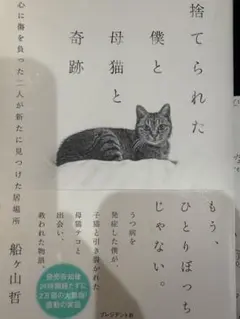 捨てられた
僕と
母猫と
奇跡
心に傷を負った二人が新たに見つけた居場所
船ヶ山哲
もう、
ひとりぼっち
じゃない。
うつ病を
発症した僕が、
子猫と引き裂かれた
母猫チコと
出会い、
救われた物語。
プレジデント社